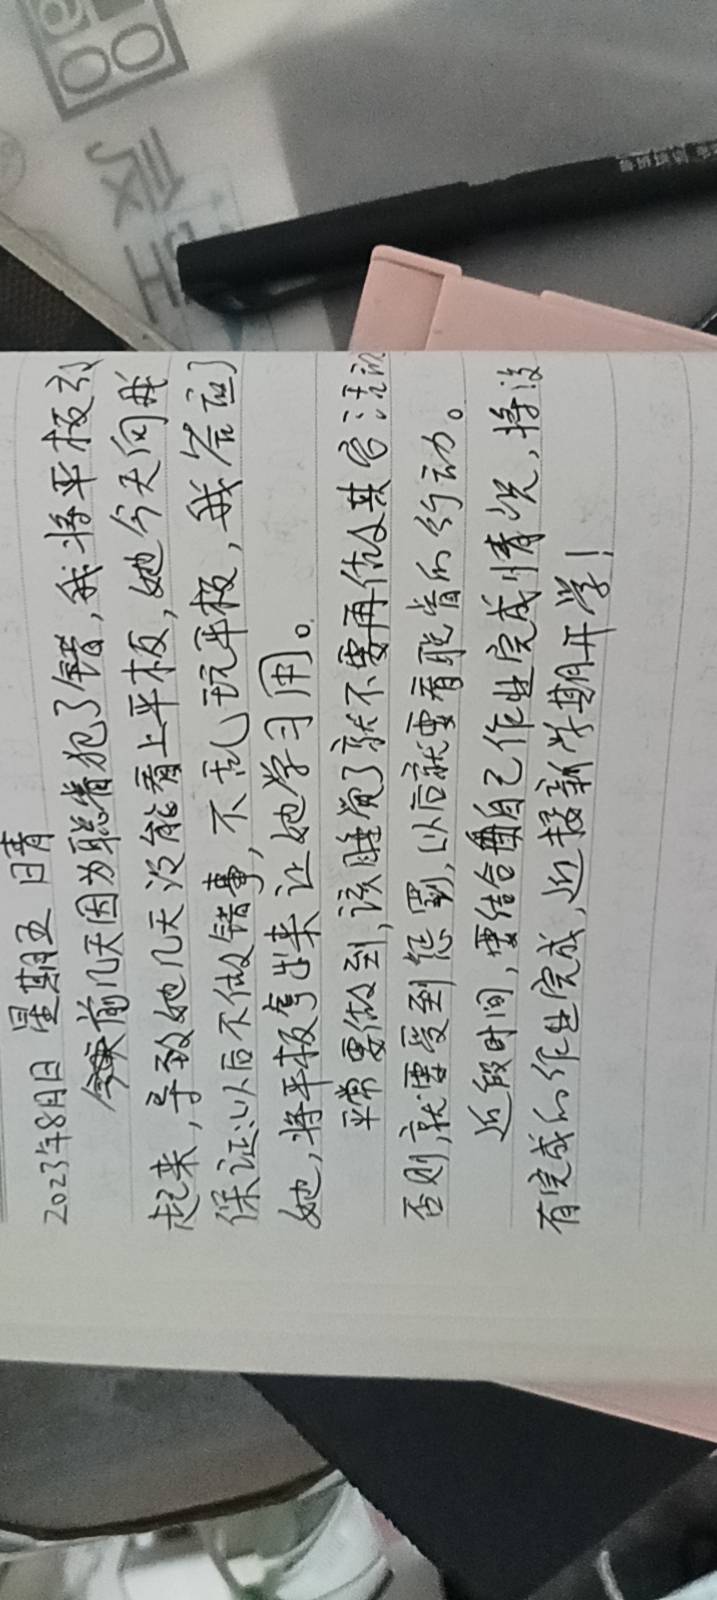 2023年8月日 星期五 日青
前几天因为聪肯犯了错,我将平板
起来,导致她几天没能看上平板,她今天向我
保证:以后不做错事,不乱玩平板,我答应了
她,将平板拿出来让她学习用。
平常要做到,该睡觉了就不要再做其它活动
否则,就要受到惩罚,以后就要看聪肯的行动。
近段时间,要结合自己作业完成情况,将没
有完成的作业完成,迎接新学期开学!